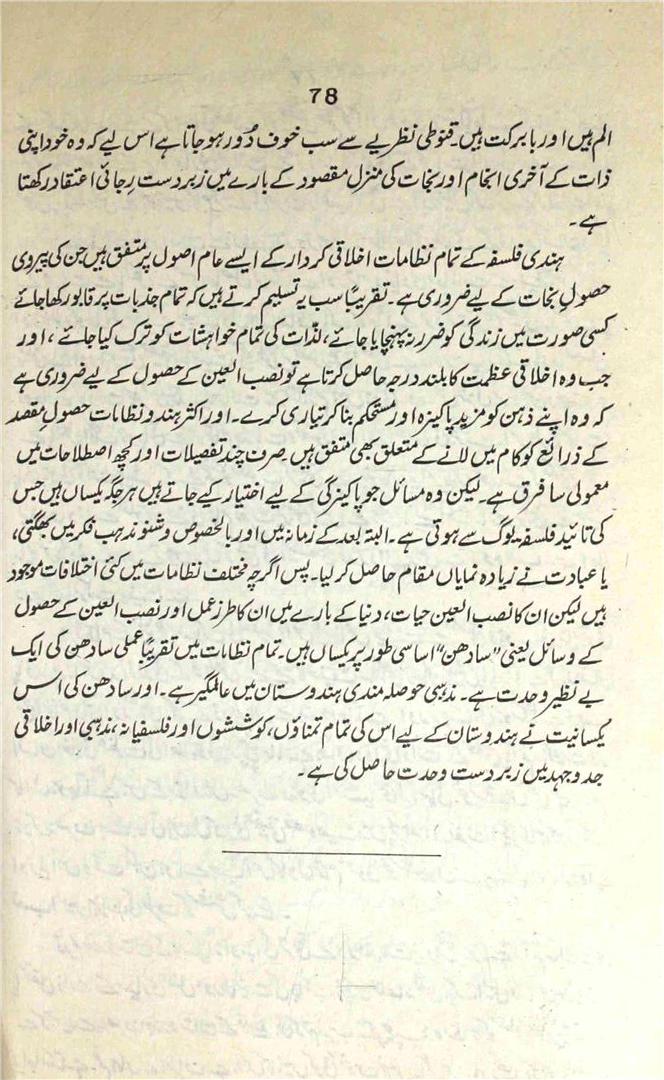 78
الم ہیں اور بابرکت ہیں۔ قنوطی نظریے سے سب خوف دُور ہو جاتا ہے اس لیے کہ وہ خود اپنی
ذات کے آخری انجام اور نجات کی منزل مقصود کے بارے میں زبردست رجائی اعتقاد رکھتا
ہے۔
ہندی فلسفہ کے تمام نظامات اخلاقی کردار کے ایسے عام اصول پر متفق ہیں جن کی پیروی
حصولِ نجات کے لیے ضروری ہے۔ تقریباً سب یہ تسلیم کرتے ہیں کہ تمام جذبات پر قابو رکھا جائے
کسی صورت میں زندگی کو ضرر نہ پہنچایا جائے، لذّات کی تمام خواہشات کو ترک کیا جائے، اور
جب وہ اخلاقی عظمت کا بلند درجہ حاصل کرتا ہے تو نصب العین کے حصول کے لیے ضروری ہے
کہ وہ اپنے ذہن کو مزید پاکیزہ اور مستحکم بنا کر تیاری کرے۔ اور اکثر ہندو نظامات حصولِ مقصد
کے ذرائع کو کام میں لانے کے متعلق بھی متفق ہیں۔ صرف چند تفصیلات اور کچھ اصطلاحات میں
معمولی سا فرق ہے۔ لیکن وہ مسائل جو پاکیزگی کے لیے اختیار کیے جاتے ہیں ہر جگہ یکساں ہیں جس
کی تائید فلسفہ یوگ سے ہوتی ہے۔ البتہ بعد کے زمانہ میں اور بالخصوص وشنو مذہب فکر میں بھگتی،
یا عبادت نے زیادہ نمایاں مقام حاصل کر لیا۔ پس اگرچہ مختلف نظامات میں کئی اختلافات موجود
ہیں لیکن ان کا نصب العین حیات، دنیا کے بارے میں ان کا طرز عمل اور نصب العین کے حصول
کے وسائل یعنی "سادھن" اساسی طور پر یکساں ہیں۔ تمام نظامات میں تقریباً عملی سادھن کی ایک
بے نظیر وحدت ہے۔ مذہبی حوصلہ مندی ہندوستان میں عالمگیر ہے۔ اور سادھن کی اس
یکسانیت نے ہندوستان کے لیے اس کی تمام تمناؤں، کوششوں اور فلسفیانہ، مذہبی اور اخلاقی
جدوجہد میں زبردست وحدت حاصل کی ہے۔